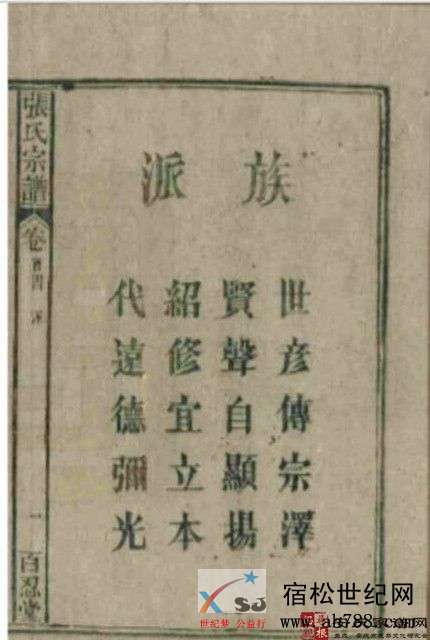 族派
世彥傳宗澤
賢聲自顯揚
紹修宜立本
代遠德彌光
張氏宗譜
卷首四
一
百忍堂
XSJ
世纪梦 公益行
宿松世纪网
www.ah788.com